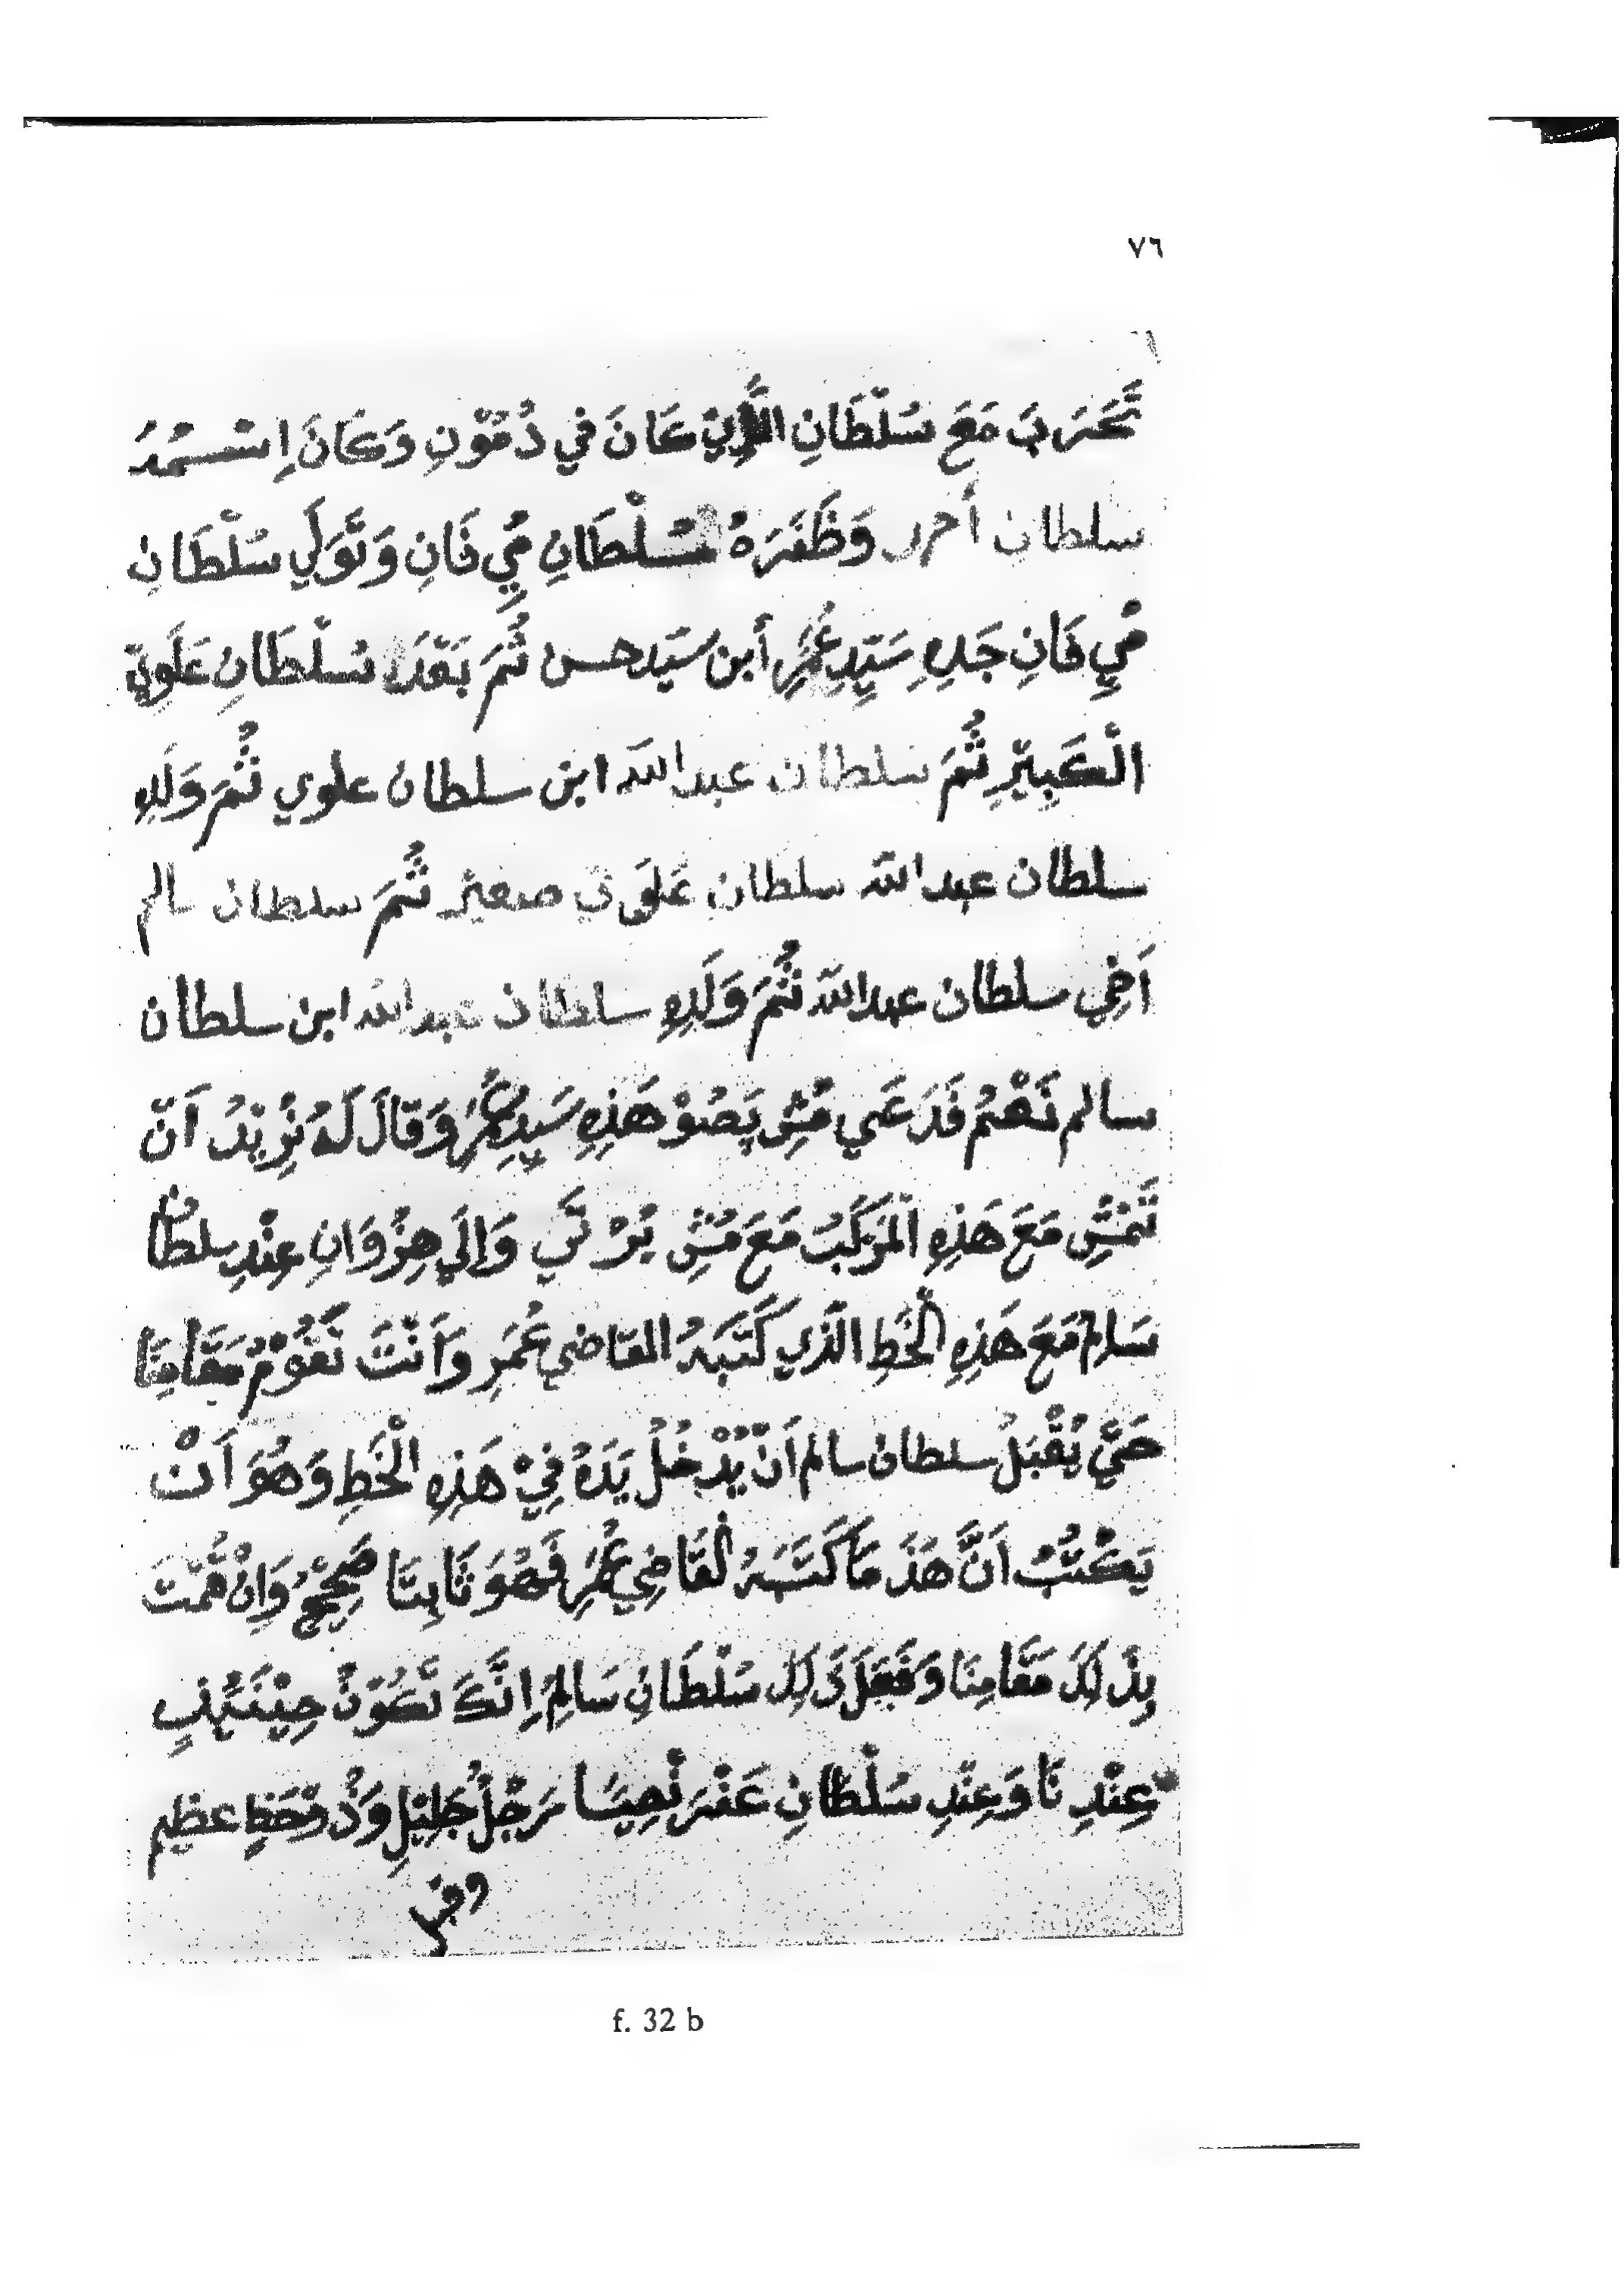 ٧٦
تَحَرَبَ مَعَ سُلْطَانِ الَّذِيْ كَانَ فِي دُمُوْنِ وَكَانَ اِسْمُهُ
سلطان أحمد وَظَفَرَهُ سُلْطَانِ مِيِ فَانِ وَتَوَلَي سُلْطَانِ
مِيِ فَانِ جَدِهِ سَيِّدِ عُمَرِ أبن سَيّد حسن ثُمَ بَعْدَ سُلْطَانِ عَلَوِيِ
الْكَبِيْرِ ثُمَ سلطان عبدالله ابن سلطان علوي ثُمَ وَلَدِهِ
سلطان عبدالله سلطان عَلَوِيْ صغير ثُمَ سلطان سالم
اَخِيِ سلطان عبدالله ثُمَ وَلَدِهِ سلطان عبدالله ابن سلطان
سالم نَعْمْ فَدَعَي مُشِ پَصُوْ هَذِهِ سَيِدِ عُمَرِ وَقَالَ لَهُ نُرِيْدُ اَنّ
تَمْشِ مَعَ هَذِهِ الْمَرْكَبُ مَعَ مُشِ بُرْنَي وَاِلَي هِزُوَانِ عِنْدِ سلطان
سَالم مَعَ هَذِهِ الْخَطِ الَّذِي كَتَبَهُ القاضي عُمَرِ وَاَنْتَ تَقُوْمُ مَقَامِنَا
حَتَّي يُقْبَلُ سلطان سالم اَنْ يُدْخُلُ يَدَهُ فِيْ هَذِهِ الْخَطِ وَهُوَ اَنْ
يَكْتُبُ اَنَّ هَذَ مَا كَتَبَهُ الْقَاضِي عُمَرِ فَهُوَ ثَابِتَا صَحِيْحٍ وَاِنْ قُمْتَ
بِذَلِكَ مَقَامِنَا وَفَعَلَ ذَلِكَ سُلْطَانِ سَالِمُ اِنَّكَ تَكُوْنُ حِيْنَئِذٍ
عِنْدِنَا وَعِنْدِ سُلْطَانِ عَنْبَرَنْصِيَا رَجُلٌ جَلِيْلِ وَذُوْ حَظٍ عظيم
f. 32 b